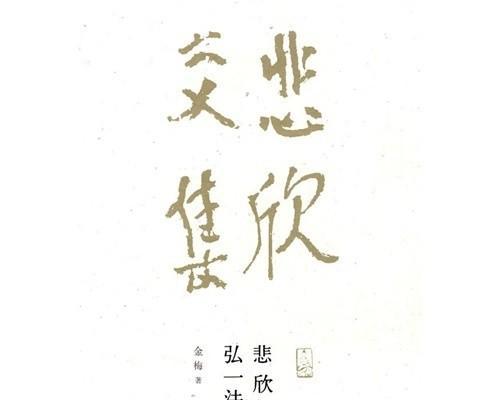 悲欣
交集
悲欣
弘一法
金梅 著